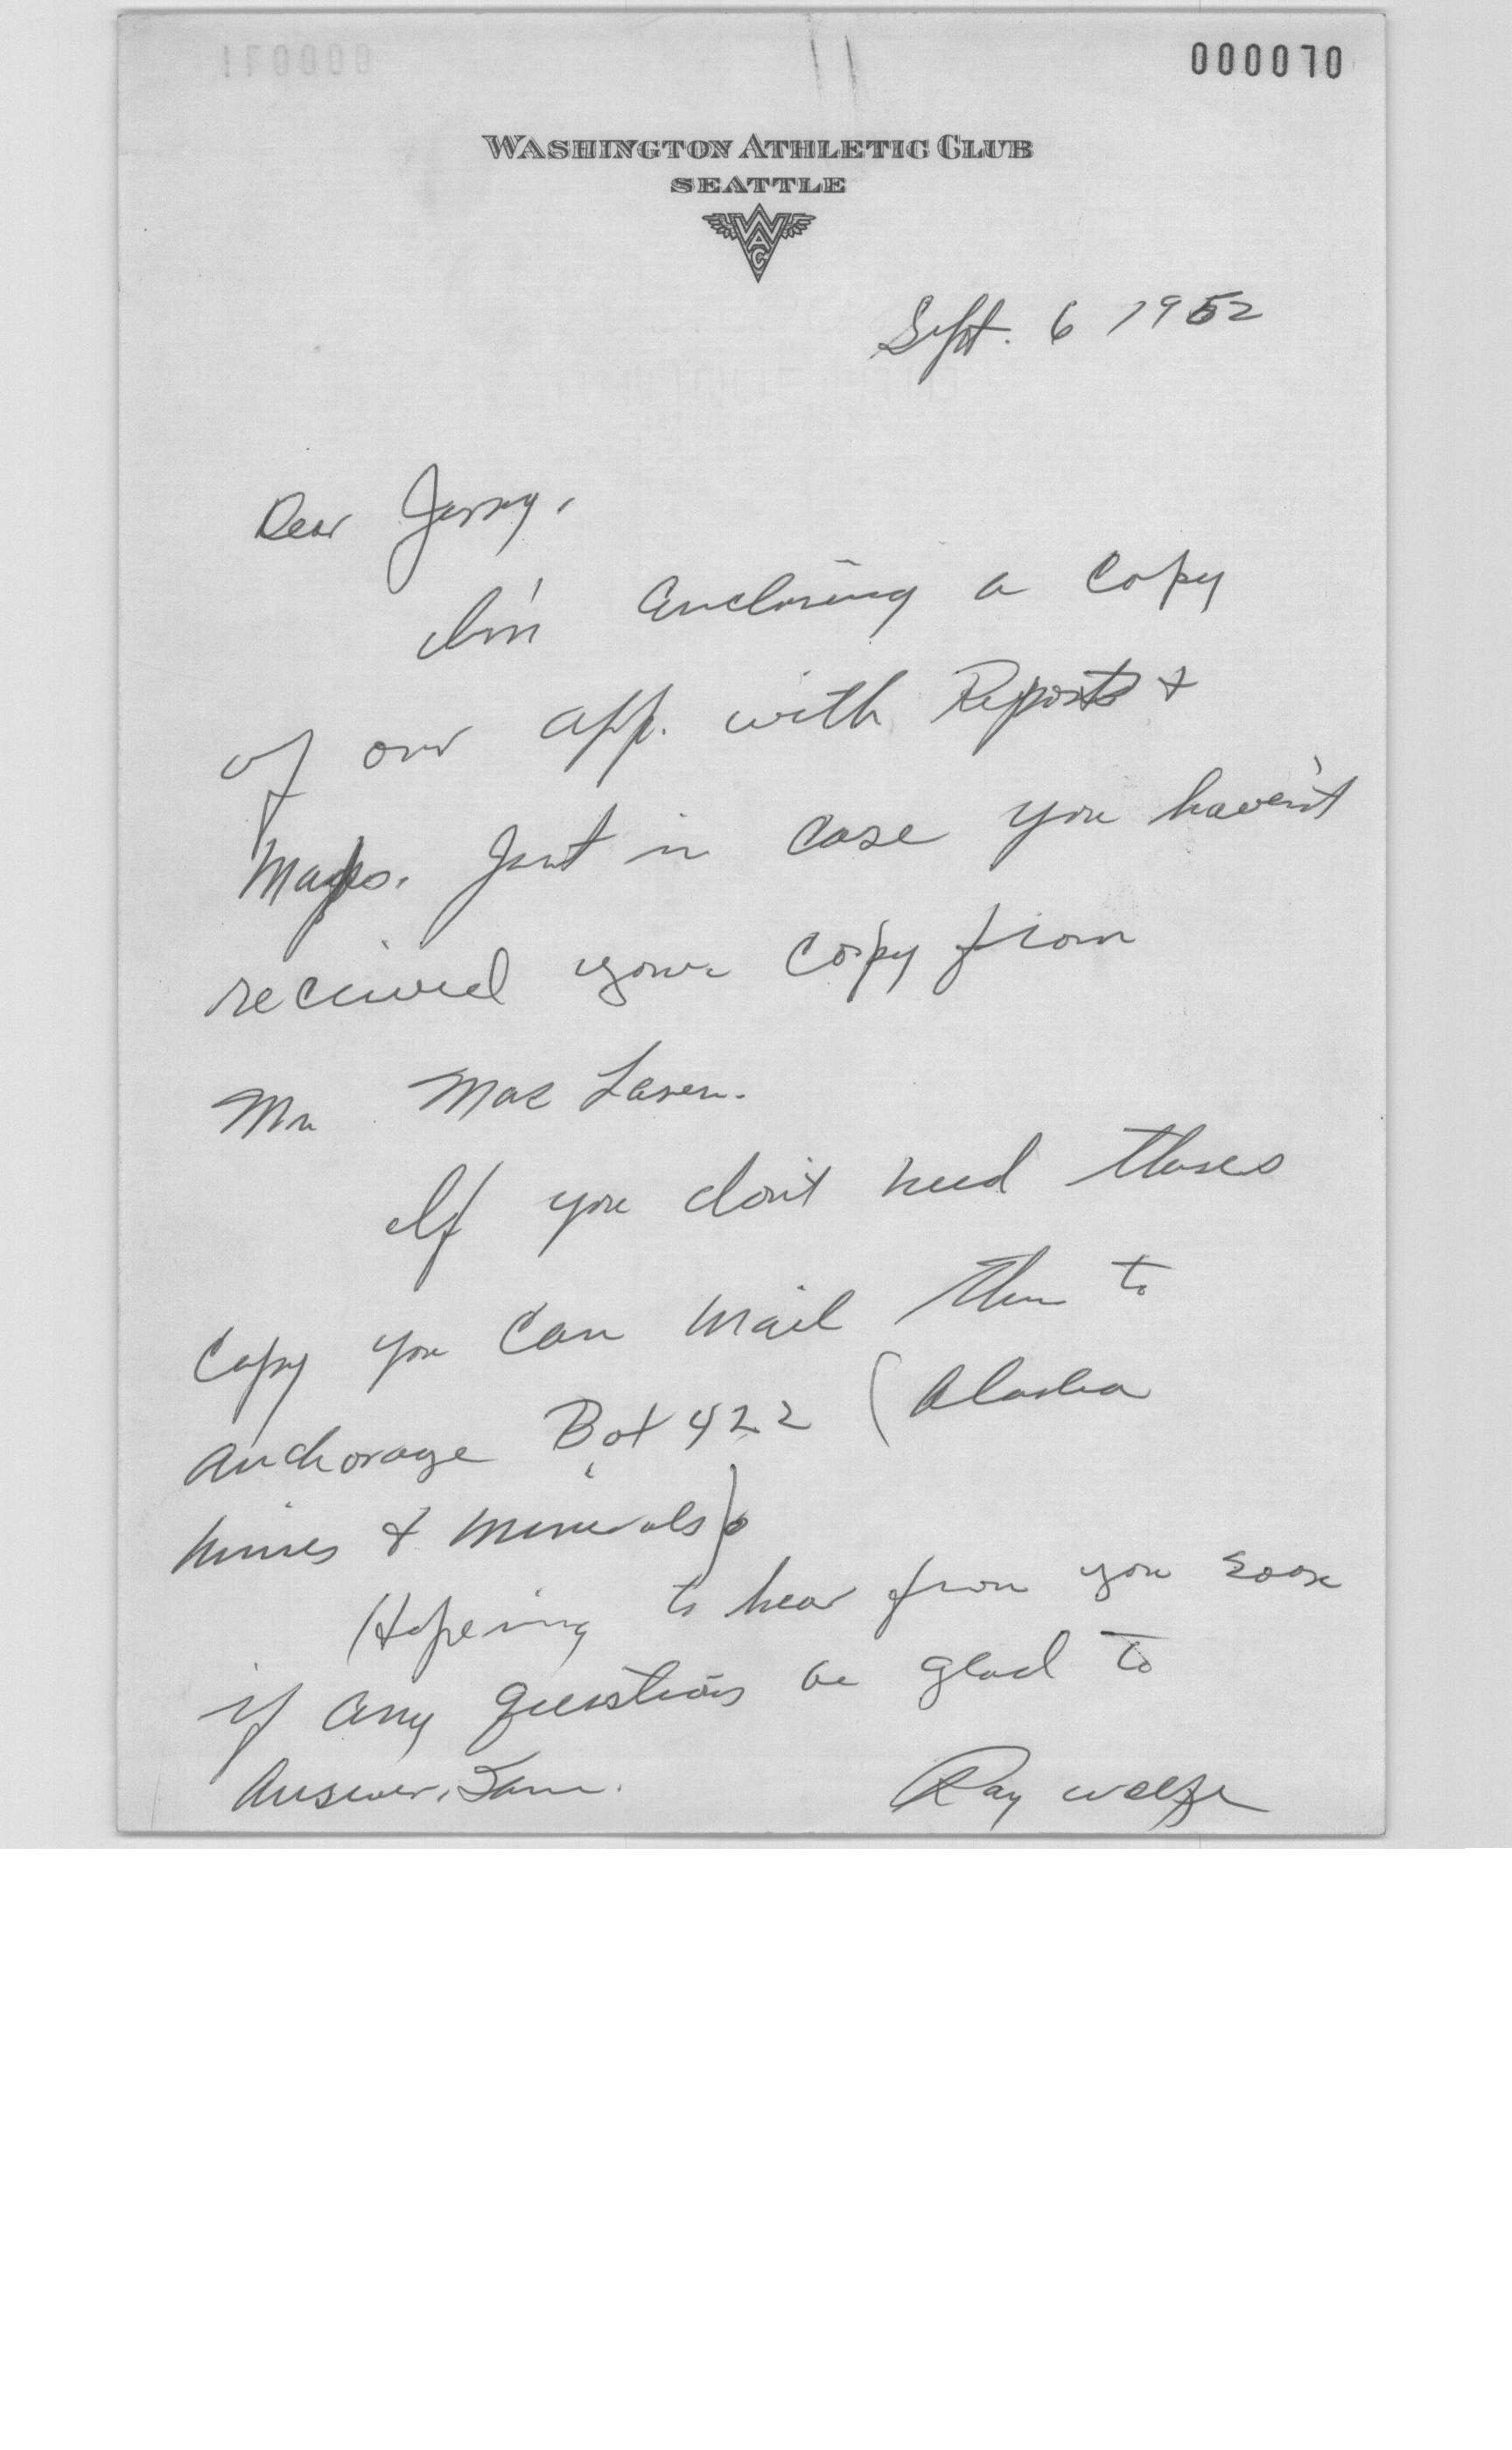 000070
WASHINGTON ATHLETIC CLUB
SEATTLE
WAC
Sept. 6 1952
Dear Jerry,
I'm enclosing a copy
of our app. with Reports &
Maps. Just in case you haven't
received your copy from
Mr Mac Laren.
If you don't need these
copy you can mail them to
Anchorage Box 422 (Alaska
Mines & Minerals).
Hopeing to hear from you soon
if any questions be glad to
Answer, Same.
Ray Wolfe